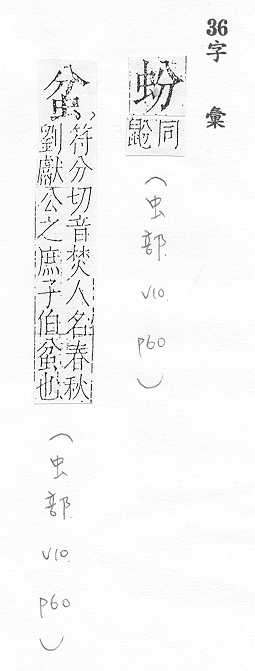 36字 彙
蚡 同鼢
(虫部 V10. P60)
蚠 符分切音焚人名春秋
劉獻公之庶子伯蚠也
(虫部 V10. P60)